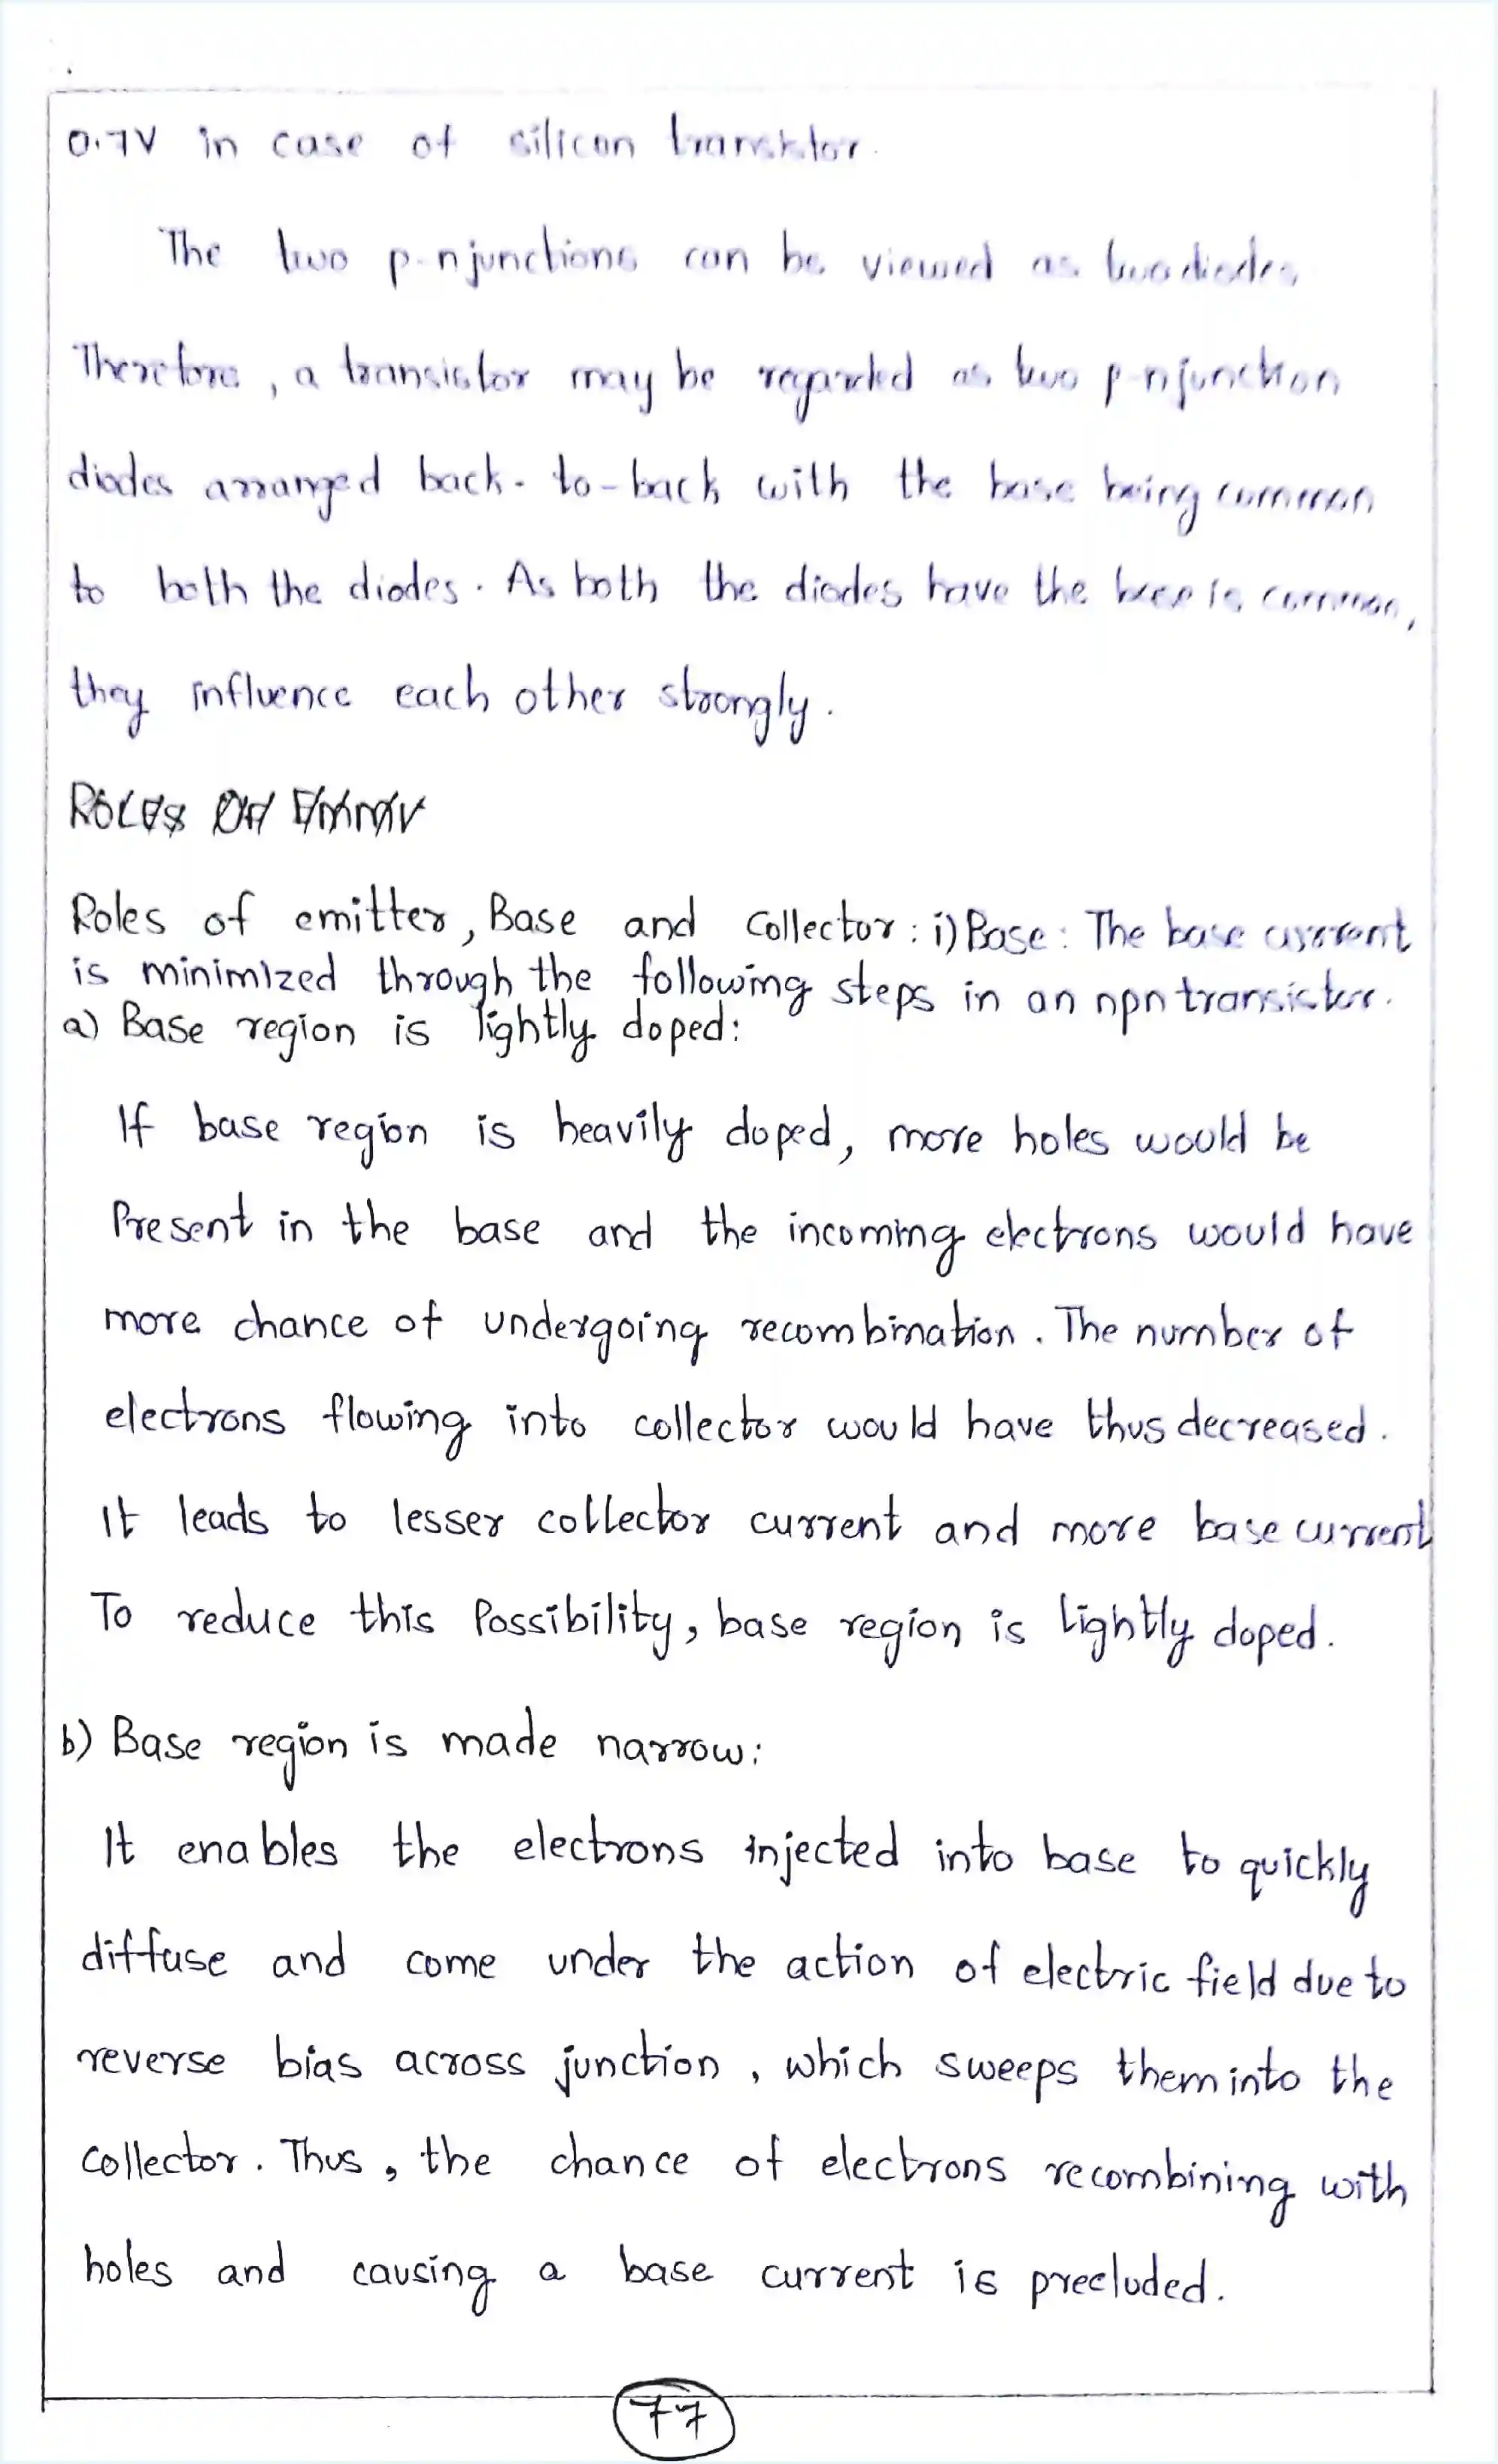 0.7V in case of silicon transistor.
The two p-n junctions can be viewed as two diodes
Therefore, a transistor may be regarded as two p-n junction
diodes arranged back-to-back with the base being common
to both the diodes. As both the diodes have the base is common,
they influence each other strongly.
Roles of emitter, Base and Collector: i) Base: The base current
is minimized through the following steps in an npn transistor.
a) Base region is lightly doped:
If base region is heavily doped, more holes would be
Present in the base and the incoming electrons would have
more chance of undergoing recombination. The number of
electrons flowing into collector would have thus decreased.
It leads to lesser collector current and more base current
To reduce this Possibility, base region is lightly doped.
b) Base region is made narrow:
It enables the electrons injected into base to quickly
diffuse and come under the action of electric field due to
reverse bias across junction, which sweeps them into the
collector. Thus, the chance of electrons recombining with
holes and causing a base current is precluded.
77